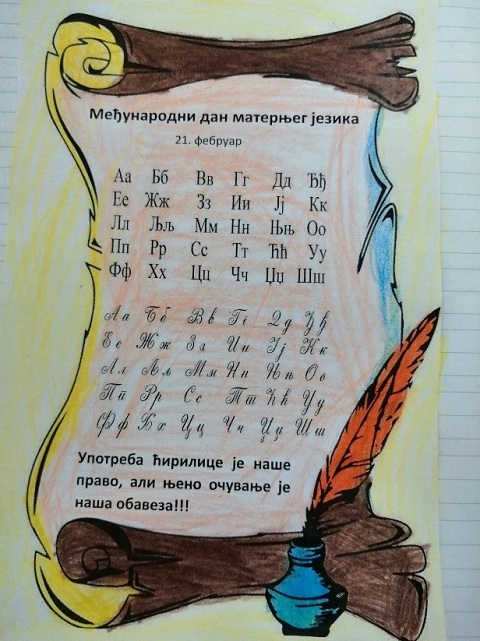 Међународни дан матерњег језика
21. фебруар
Аа Бб Вв Гг Дд Ђђ
Ее Жж Зз Ии Јј Кк
Лл Љљ Мм Нн Њњ Оо
Пп Рр Сс Тт Ћћ Уу
Фф Хх Цц Чч Џџ Шш
Аа Бб Вв Гг Дд Ђђ
Ее Жж Зз Ии Јј Кк
Лл Љљ Мм Нн Њњ Оо
Пп Рр Сс Тт Ћћ Уу
Фф Хх Цц Чч Џџ Шш
Употреба ћирилице је наше
право, али њено очување је
наша обавеза!!!